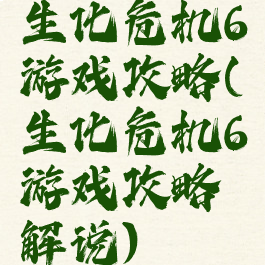 生化危机6
游戏攻略(
生化危机6
游戏攻略
解说)